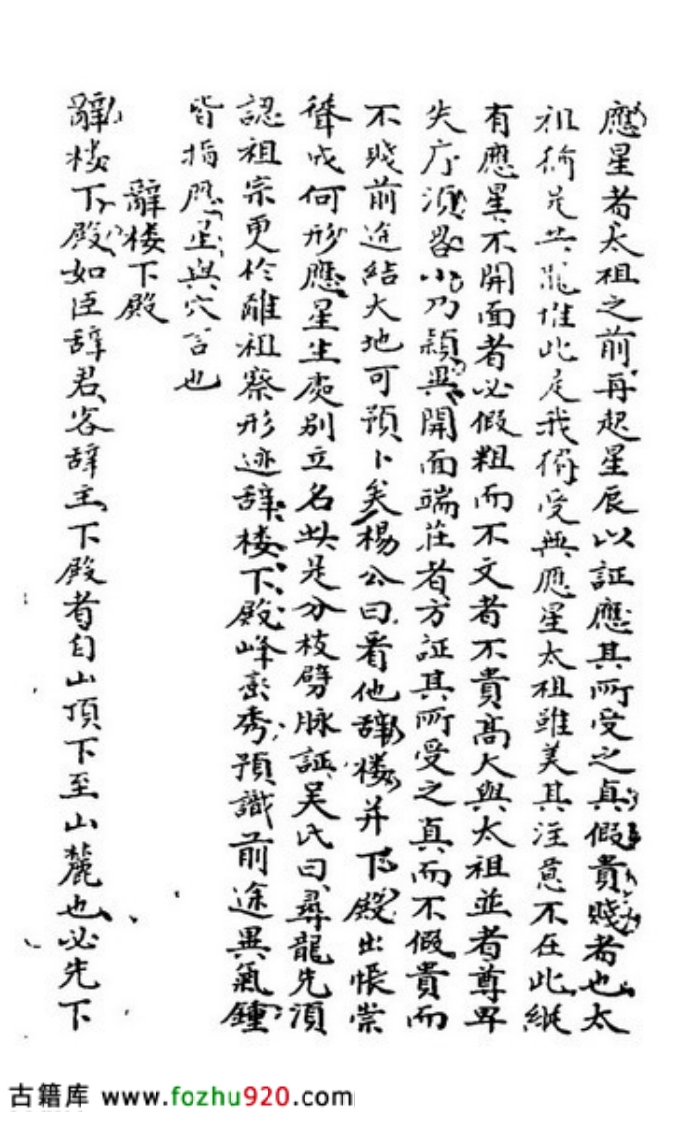 應星者太祖之前再起星辰以証應其所受之真假貴賤者也太
祖猶是共此龍堆此定我獨受無應星太祖雖美其注意不在此縱
有應星不開面者必假粗而不文者不貴高大與太祖並者尊卑
失序須畧小乃頴異開面端莊者方証其所受之真而不假貴而
不賤前途結大地可預卜矣楊公曰看他辞楼并下殿出帳崇
聳成何形應星生處別立名此是分枝劈脉証吴氏曰尋龍先須
認祖宗更於離祖察形迹辞楼下殿峰巒秀預識前途異氣鍾
皆指應星與穴言也
辭樓下殿
辭楼下殿如臣辞君客辞主下殿者自山頂下至山麓也必先下
古籍库 www.fozhu920.com